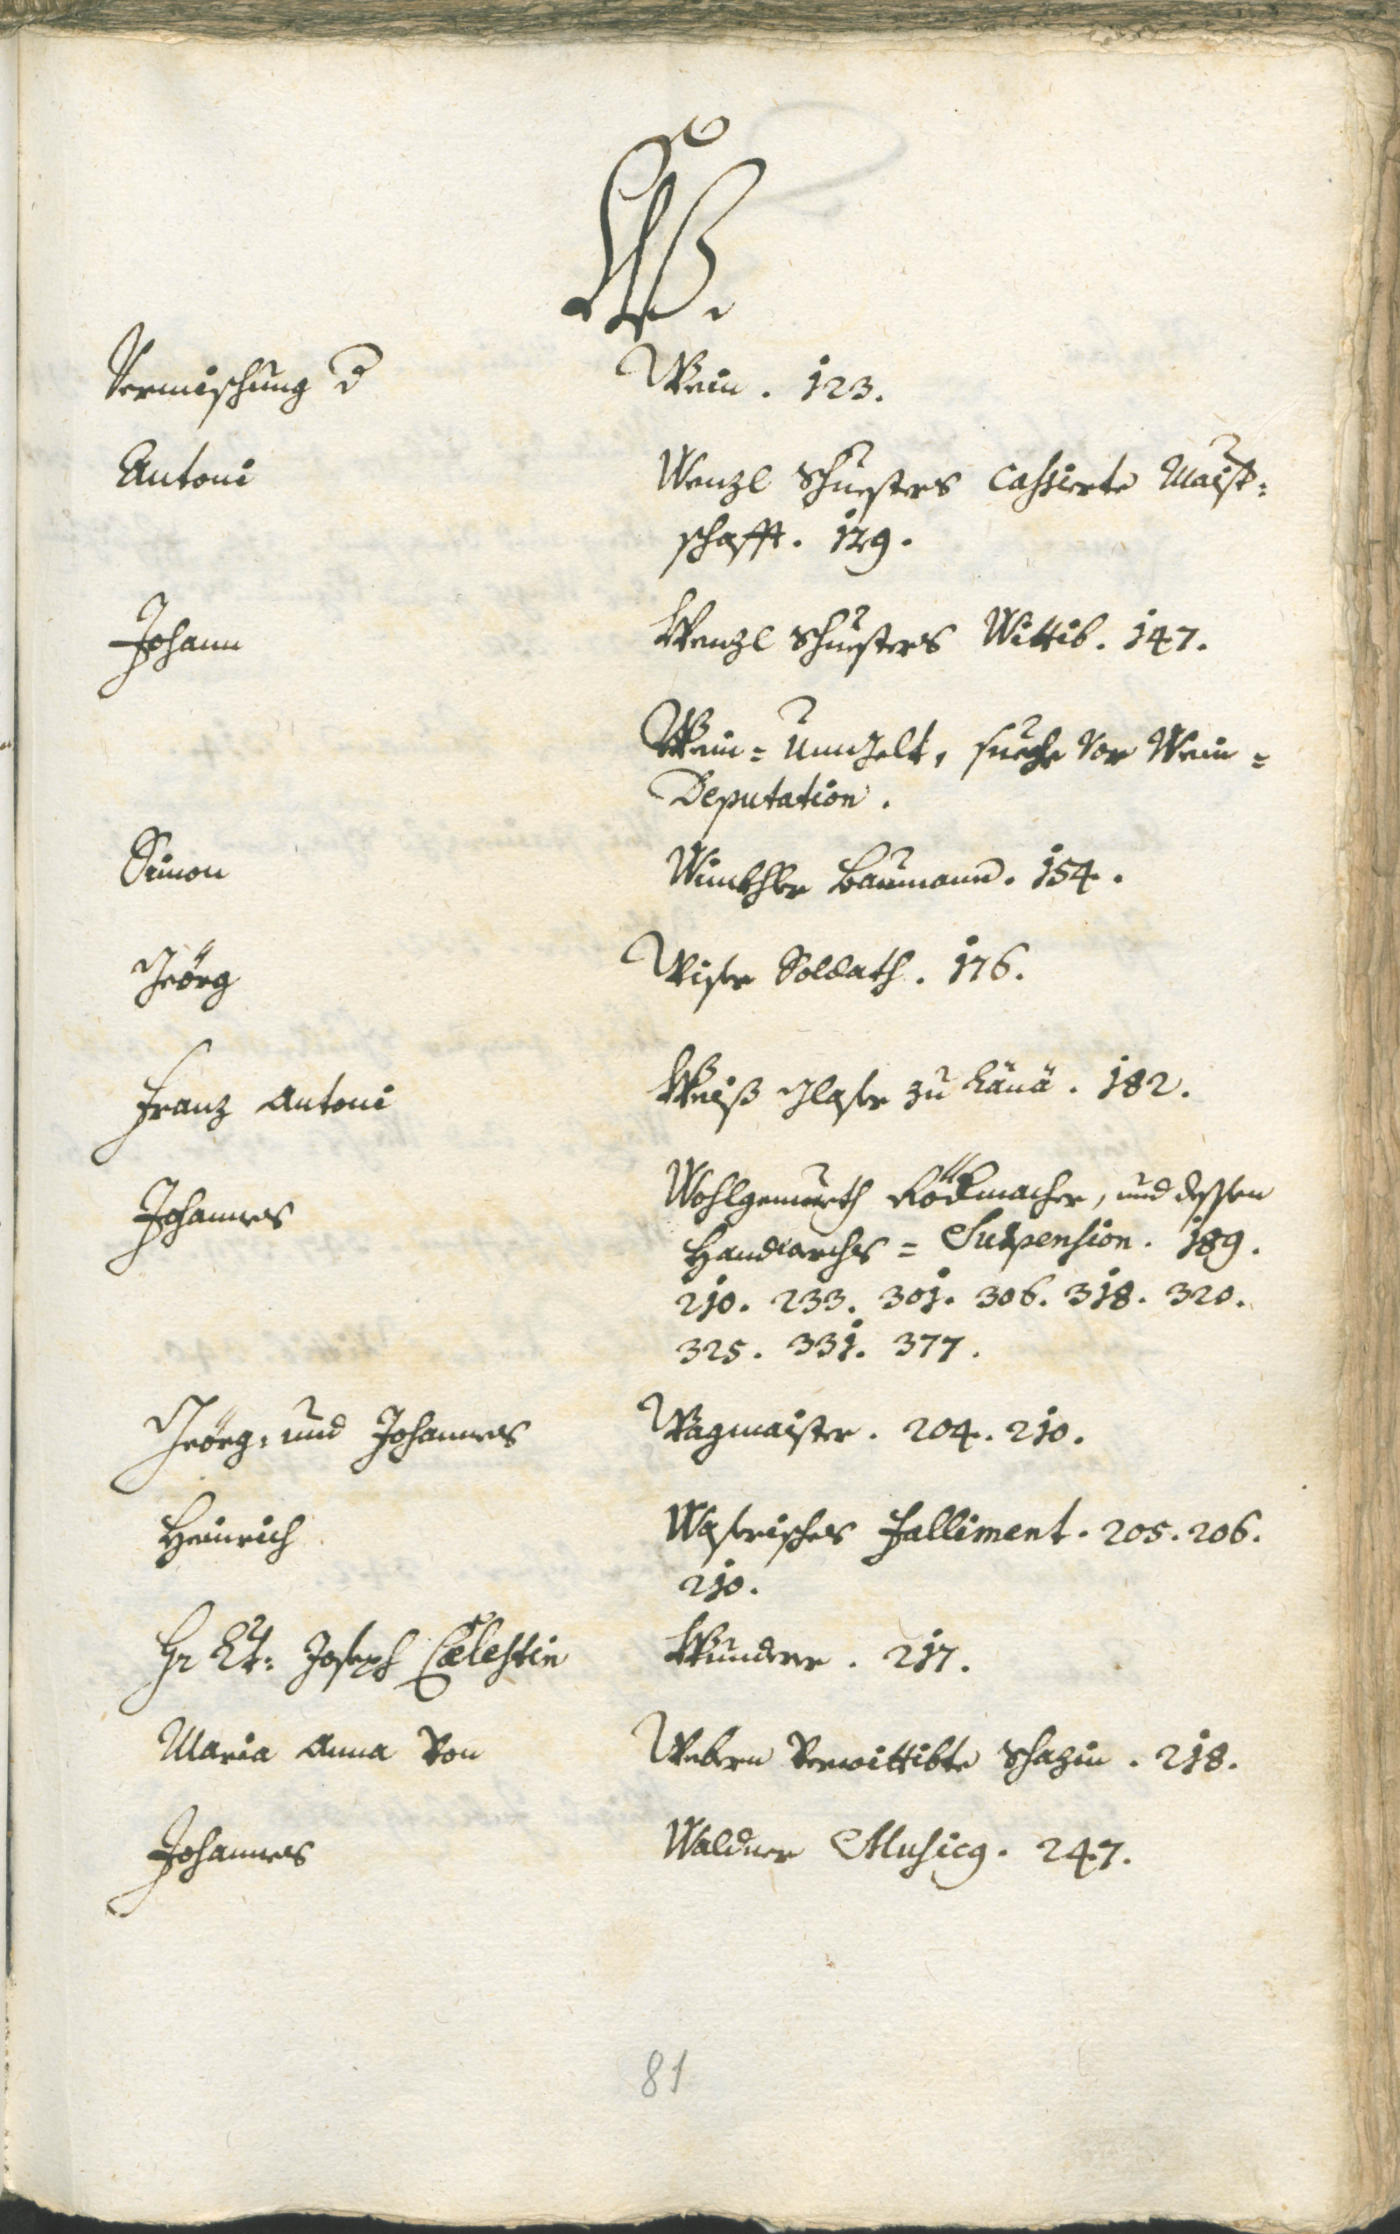 W.
Vermischung d Wein. 123.
Antoni Wenzl Schuesters cassierte Maist=
schafft. 129.
Johann Wenzl Schuesters Wittib. 147.
Wein= Umgelt, suche vor Wein=
Deputation.
Simon Baumann. 154.
Geörg Wiser Soldath. 176.
Franz Antoni Weiß Glaser zu Länä. 182.
Johannes Wohlgemueth Rökmacher, und dessen
Handwerchs= Suspension. 189.
210. 233. 301. 306. 318. 320.
325. 331. 377.
Geörg= und Johannes Wagmaister. 204. 210.
Heinrich Waserisches Falliment. 205. 206.
210.
Hr Lt: Joseph Cælestin Wunderer. 217.
Maria Anna von Webern verwittibte Schazin. 218.
Johannes Waldner Musicg. 247.
81